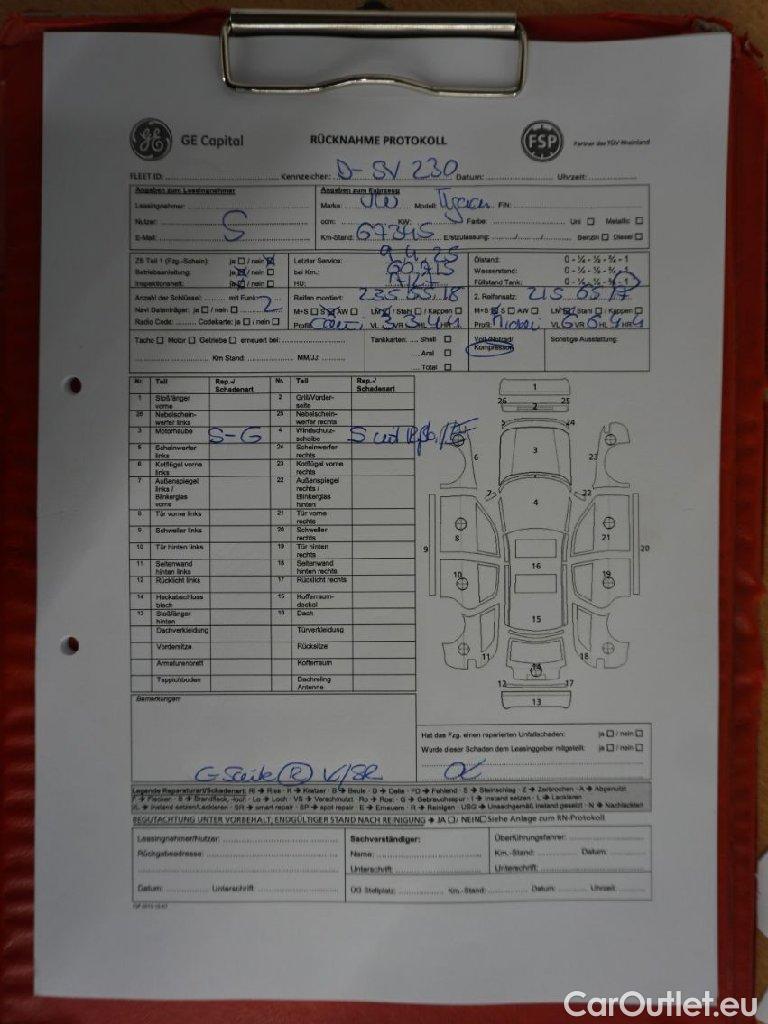 GE Capital RÜCKNAHME PROTOKOLL FSP Partner des TÜV Rheinland
FLEET ID: Kennzeichen: D-SV 230 Datum: Uhrzeit:
Angaben zum Leasingnehmer Angaben zum Fahrzeug
Leasingnehmer: Marke: VW Modell: FIN:
Nutzer: S ccm: KW: Farbe: Uni Metallic
E-Mail: Km-Stand: 67345 Erstzulassung: Benzin Diesel
ZB Teil 1 (Fzg.-Schein): ja / nein Letzter Service: 9.4.25 Ölstand: 0 - ¼ - ½ - ¾ - 1
Betriebsanleitung: ja / nein bei Km.: Wasserstand: 0 - ¼ - ½ - ¾ - 1
Inspektionsheft: ja / nein HU: Füllstand Tank: 0 - ¼ - ½ - ¾ - 1
Anzahl der Schlüssel: mit Funk: 2 Reifen montiert: 235 55 18 2. Reifensatz: 215 65 17
Navi Datenträger: ja / nein M+S S AW LM / Stahl / Kappen M+S S AW LM / Stahl / Kappen
Radio Code: Codekarte: ja / nein Profil: VL 3 VR 3 HL 4 HR 4 Profil: VL 6 VR 6 HL 4 HR 4
Tacho Motor Getriebe erneuert bei: Tankkarten: Shell Voll-/Notrad/ Sonstige Ausstattung:
Aral Kompressor
Km Stand: MM/JJ Total
Nr. Teil Rep.-/ Schadenart Nr. Teil Rep.-/ Schadenart
1 Stoßfänger vorne 2 Grill/Vorderseite
26 Nebelscheinwerfer links 25 Nebelscheinwerfer rechts
3 Motorhaube S-G 4 Windschutzscheibe S
5 Scheinwerfer links 24 Scheinwerfer rechts
6 Kotflügel vorne links 23 Kotflügel vorne rechts
7 Außenspiegel links / Blinkerglas vorne 22 Außenspiegel rechts / Blinkerglas hinten
8 Tür vorne links 21 Tür vorne rechts
9 Schweller links 20 Schweller rechts
10 Tür hinten links 19 Tür hinten rechts
11 Seitenwand hinten links 18 Seitenwand hinten rechts
12 Rücklicht links 17 Rücklicht rechts
14 Heckabschlussblech 15 Kofferraumdeckel
13 Stoßfänger hinten 16 Dach
Dachverkleidung Türverkleidung
Vordersitze Rücksitze
Armaturenbrett Kofferraum
Teppichboden Dachreling Antenne
1
26 25
2
5 24
6 3 23
7 22
4
8 21
9 20
16
10 19
15
11 18
14
12 17
13
Bemerkungen:
Hat das Fzg. einen reparierten Unfallschaden: ja / nein
Wurde dieser Schaden dem Leasinggeber mitgeteilt: ja / nein
Legende Reparaturart/Schadenart: Ri → Riss - K → Kratzer - B → Beule - D → Delle - FD → Fehlend - S → Steinschlag - Z → Zerbrochen - A → Abgenutzt
BEGUTACHTUNG UNTER VORBEHALT, ENDGÜLTIGER STAND NACH REINIGUNG → JA / NEIN Siehe Anlage zum RN-Protokoll
Leasingnehmer/Nutzer: Sachverständiger: Überführungsfahrer:
Rückgabeadresse: Name: Km.-Stand: Datum:
Unterschrift: Unterschrift:
Datum: Unterschrift ÖG Stellplatz: Km.-Stand: Datum: Uhrzeit:
CarOutlet.eu